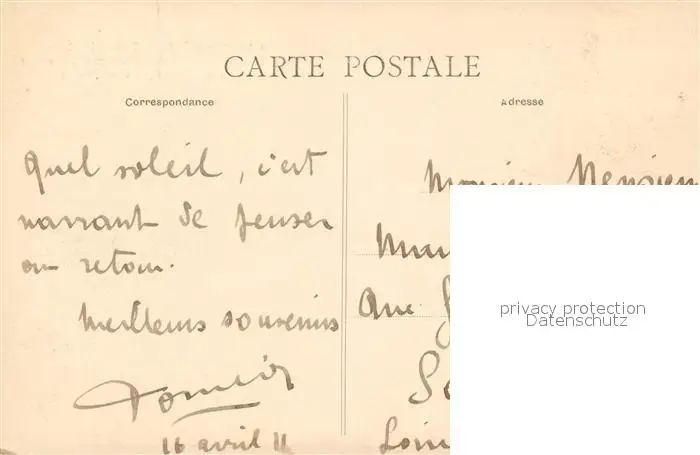 CARTE POSTALE
Correspondance
Adresse
Quel soleil, c'est
navrant de penser
au retour.
Meilleurs souvenirs
16 avril 11
Monsieur
Rue
privacy protection
Datenschutz